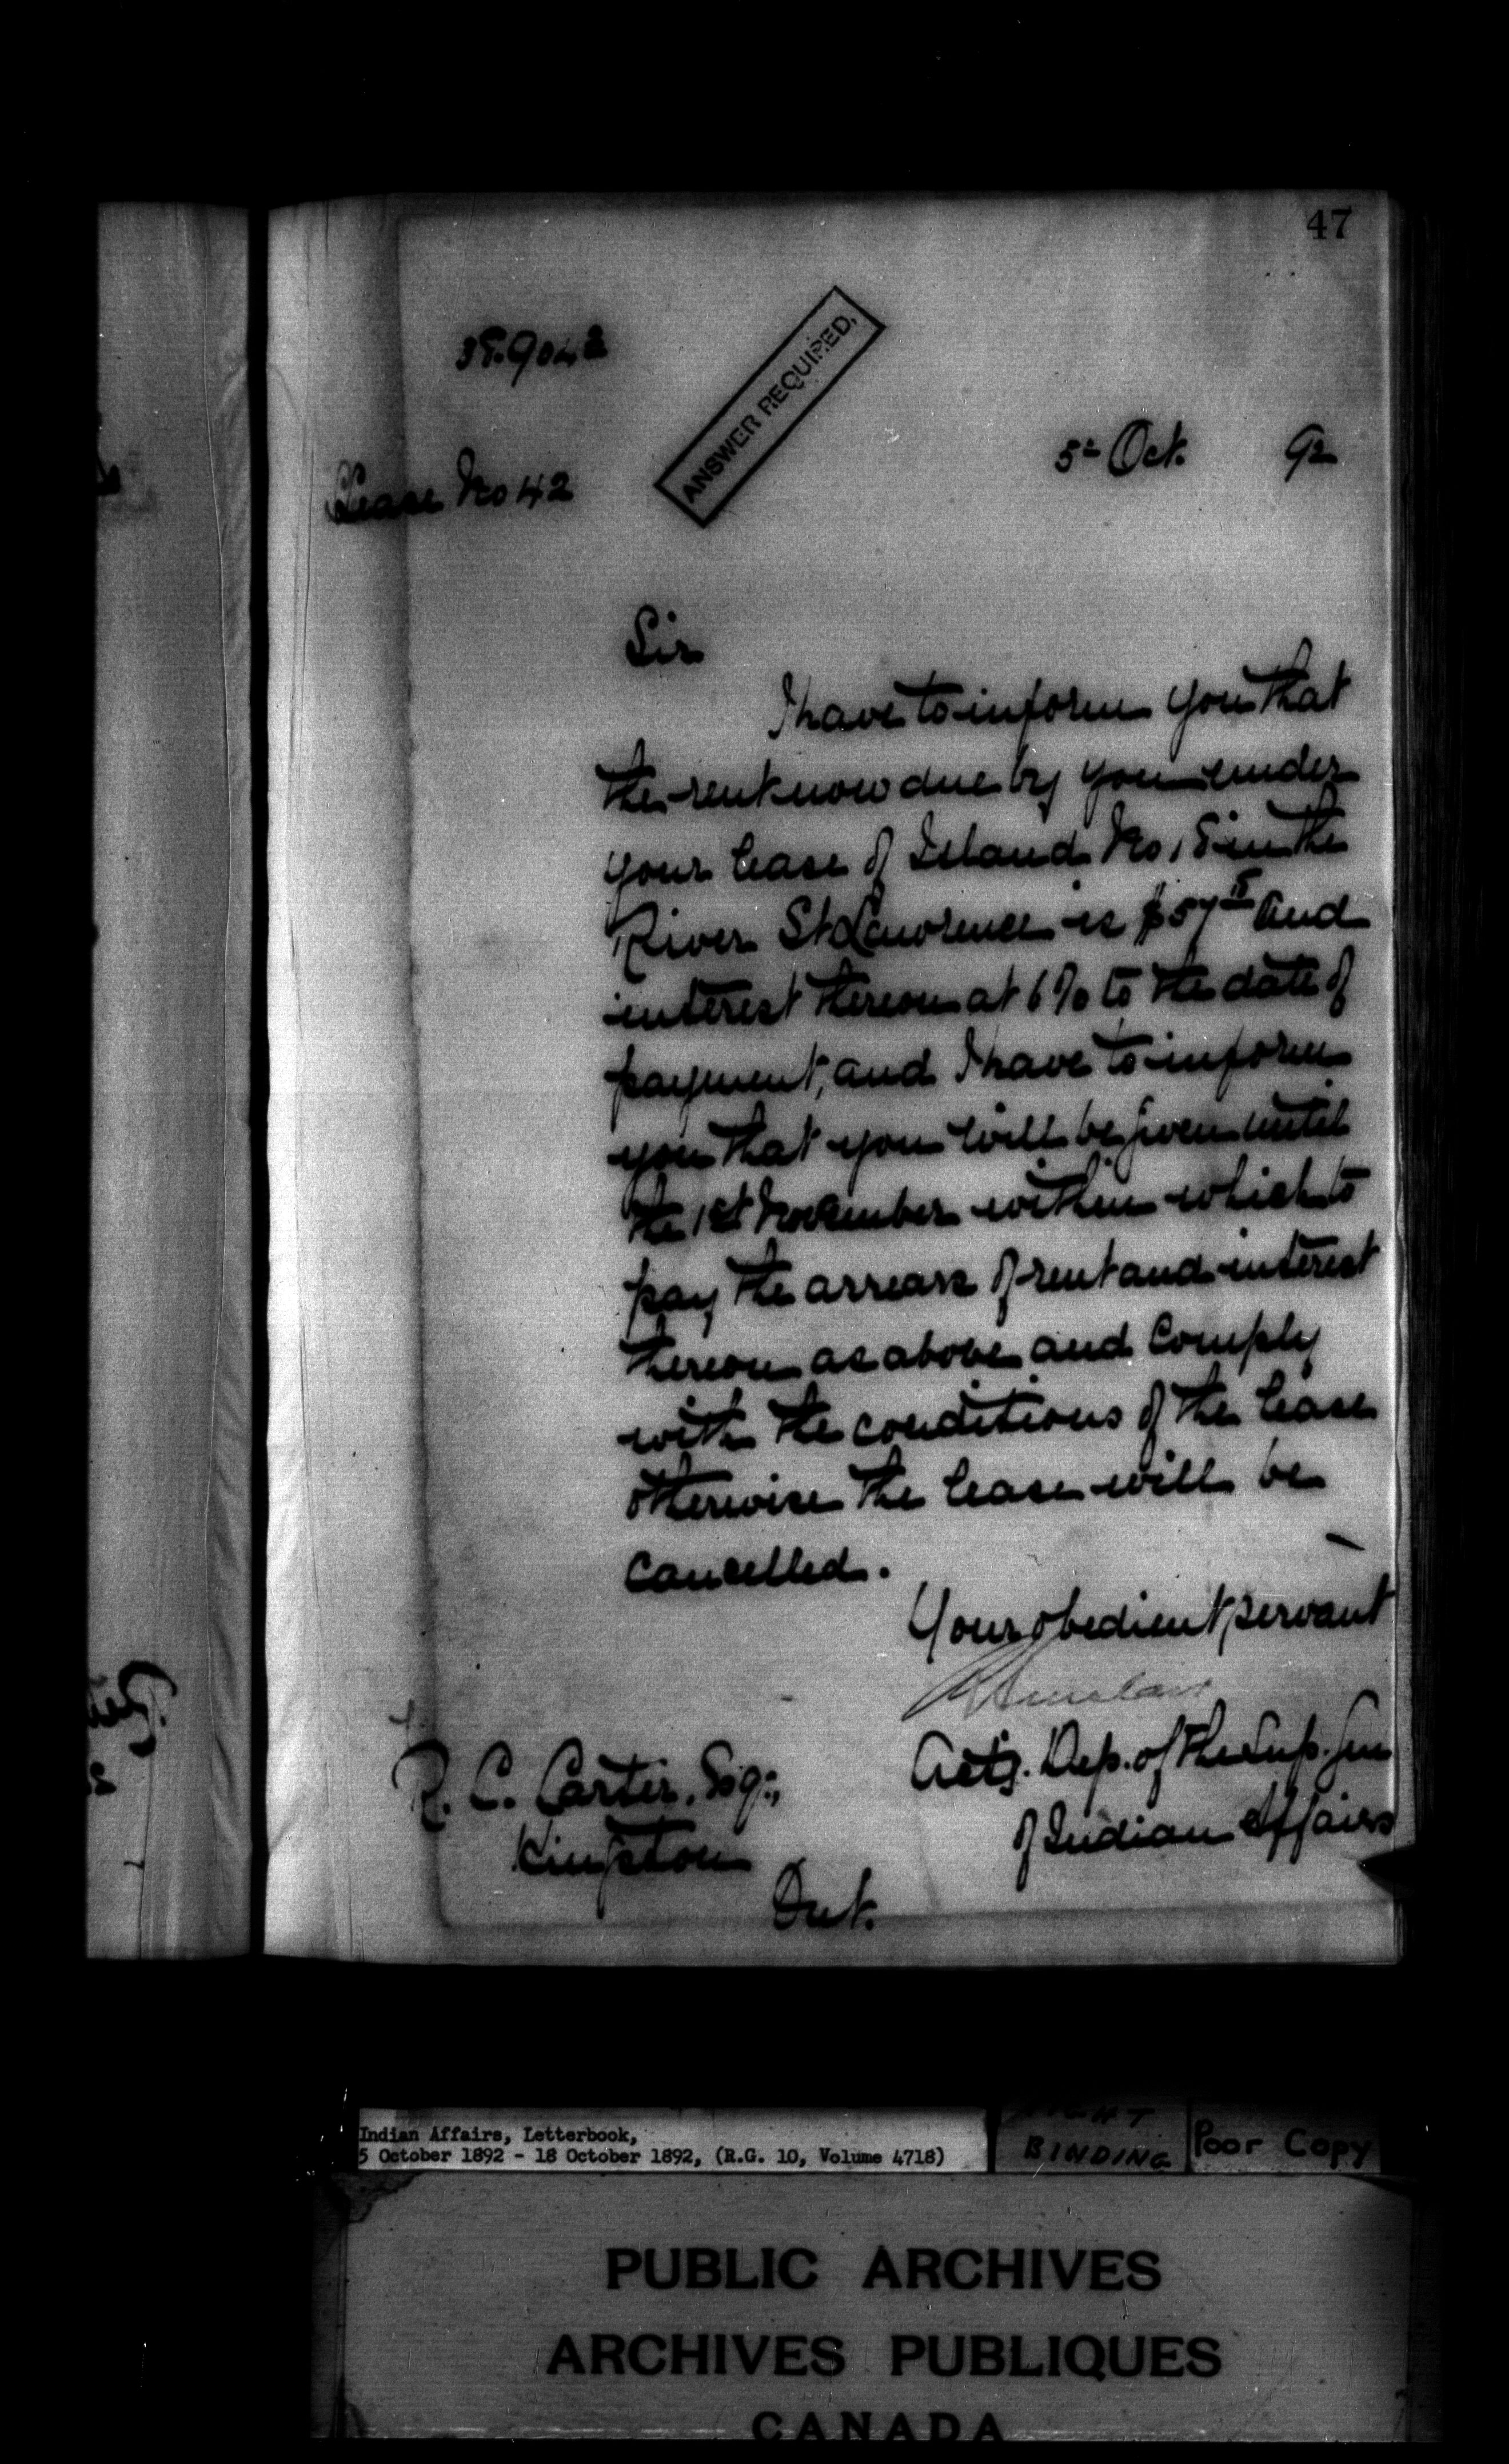 47
ANSWER REQUIRED.
5th Oct. 92
Lease No 42
Sir
I have to inform you that
the rent now due by you under
your lease of Island No 18 in the
River St Lawrence is $57 and
interest thereon at 6% to the date of
payment, and I have to inform
you that you will be given until
the 1st November within which to
pay the arrears of rent and interest
thereon as above and comply
with the conditions of the lease
otherwise the lease will be
cancelled.
Your obedient servant
R. C. Carter, Esq.,
Kingston
Ont.
Actg. Dep. of the Sup. Gen
of Indian Affairs
Indian Affairs, Letterbook,
5 October 1892 - 18 October 1892, (R.G. 10, Volume 4718)
BINDING
Poor Copy
PUBLIC ARCHIVES
ARCHIVES PUBLIQUES
CANADA